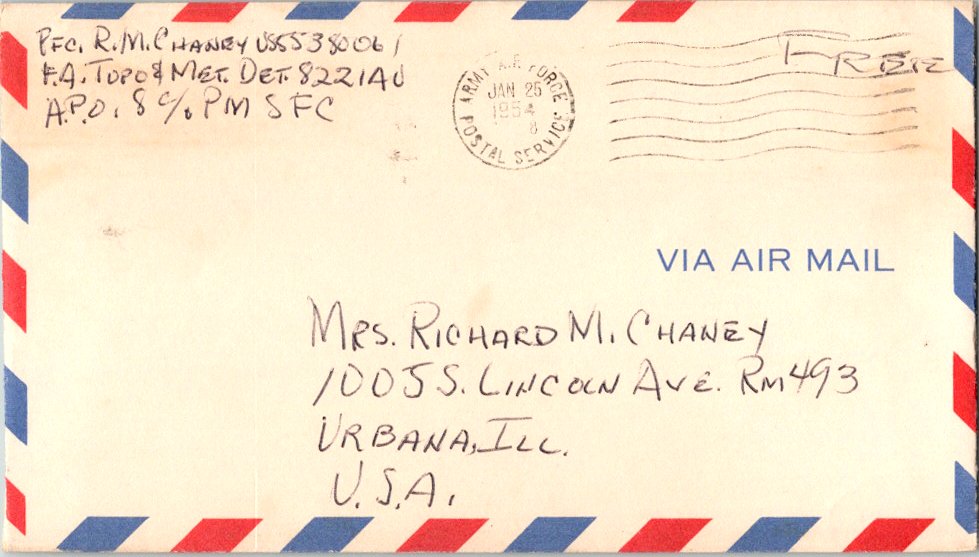 PFC. R. M. CHANEY US55380061
F.A. TOPO & MET. DET. 8221 AU
A.P.O. 8 c/o PM SFC
FREE
ARMY AIR FORCE
JAN 25
1954
8
POSTAL SERVICE
VIA AIR MAIL
MRS. RICHARD M. CHANEY
1005 S. LINCOLN AVE. RM 493
URBANA, ILL.
U.S.A.